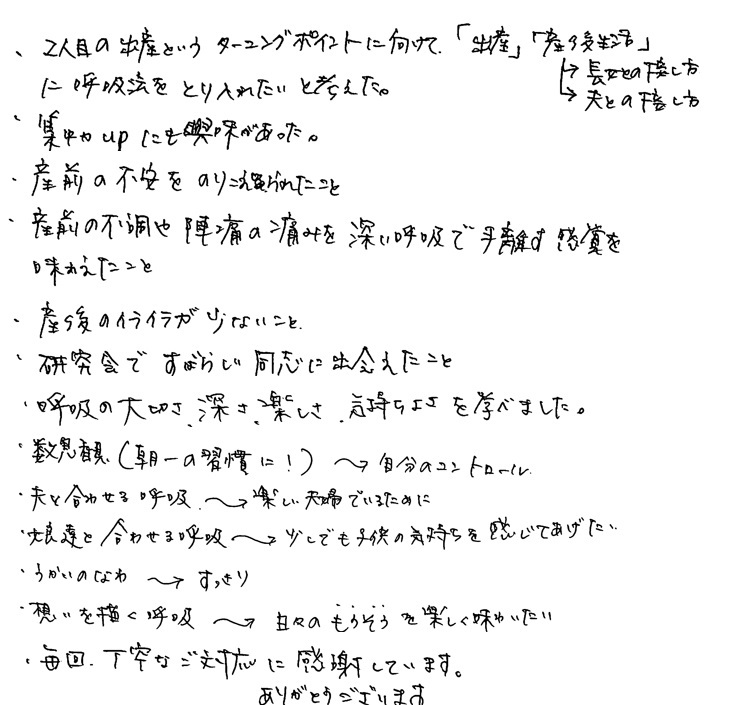 ・2人目の出産という ターニングポイントに向けて、「出産」「産後生活」
→長女との接し方
に 呼吸法を とり入れたいと考えた。
→夫との接し方
・集中力upにも興味があった。
・産前の不安を のりこえられたこと
・産前の不調や 陣痛の痛みを 深い呼吸で手離す感覚を
味わえたこと
・産後のイライラが少ないこと
・研究会で すばらしい同志に出会えたこと
・呼吸の大切さ、深さ、楽しさ、気持ちよさを学べました。
・数息観(朝一の習慣に!) → 自分のコントロール
・夫と合わせる呼吸 → 楽しい夫婦でいるために
・娘達と合わせる呼吸 → 少しでも子供の気持ちを感じてあげたい
・うがいのなわ → すっきり
・想いを描く呼吸 → 日々のもうそうを楽しく味わいたい
・毎回、丁寧なご対応に感謝しています。
ありがとうございます